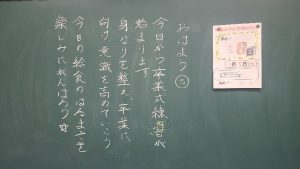 おはよう
今日から卒業式練習が
始まります。
身なりを整え、卒業に
向け意識を高めていこう
今日の給食のはるまきを
楽しみにがんばろう☆